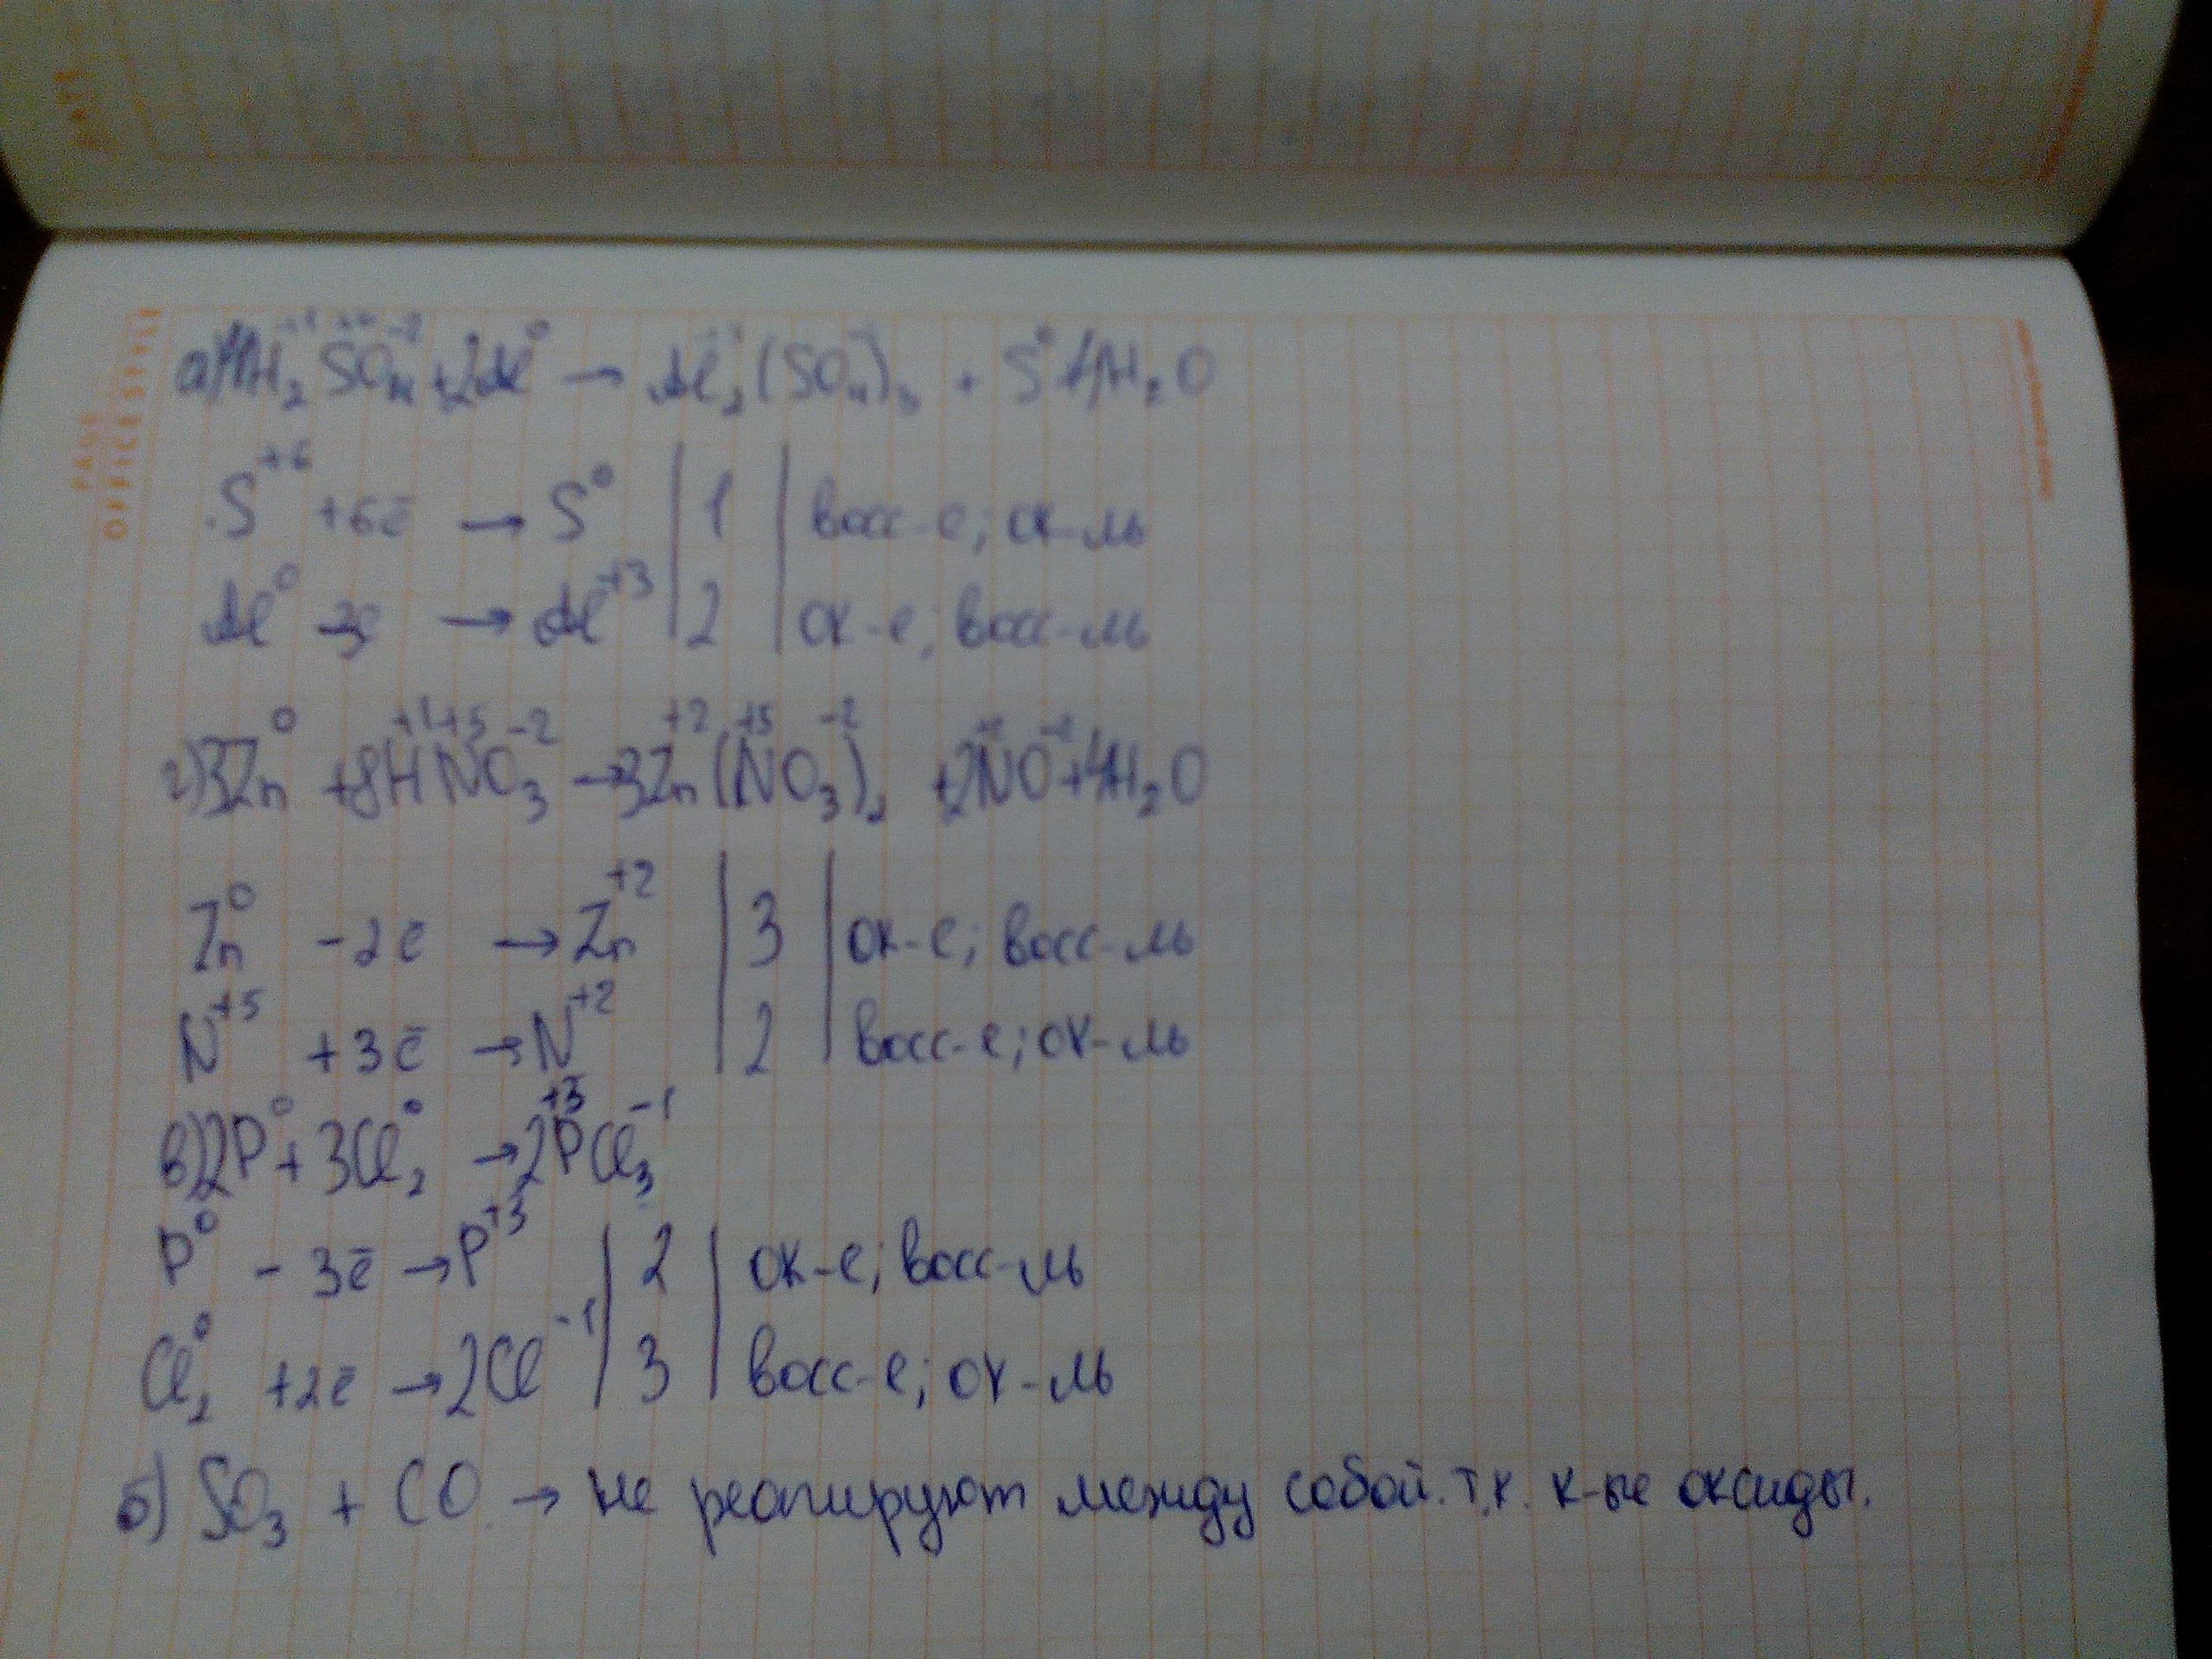 PAGE
OFFICE STYLE
а) 4H₂⁺¹S⁺⁶O₄⁻² + 2Al⁰ → Al₂(SO₄)₃ + S⁰ + 4H₂O
S⁺⁶ + 6ē → S⁰ | 1 | восс-е; ок-ль
Al⁰ - 3ē → Al⁺³ | 2 | ок-е; восс-ль
г) 3Zn⁰ + 8H⁺¹N⁺⁵O₃⁻² → 3Zn⁺²(N⁺⁵O₃⁻²)₂ + 2N⁺²O⁻² + 4H₂O
Zn⁰ - 2ē → Zn⁺² | 3 | ок-е; восс-ль
N⁺⁵ + 3ē → N⁺² | 2 | восс-е; ок-ль
в) 2P⁰ + 3Cl₂⁰ → 2P⁺³Cl₃⁻¹
P⁰ - 3ē → P⁺³ | 2 | ок-е; восс-ль
Cl₂⁰ + 2ē → 2Cl⁻¹ | 3 | восс-е; ок-ль
б) SO₃ + CO → не реагируют между собой. т.к. к-ые оксиды.